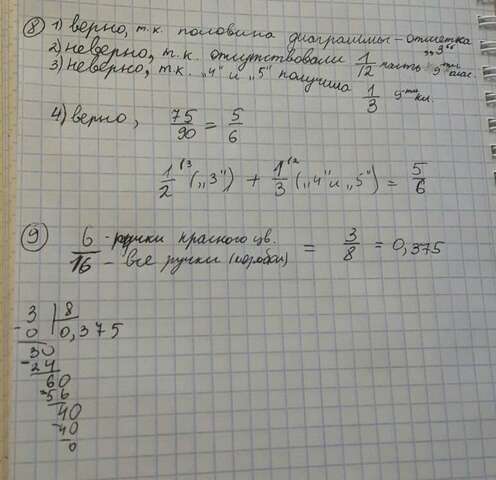 ⑧ 1) верно, т.к. половина диаграммы - отметка „3“
2) неверно, т.к. отсутствовали 1/12 часть 9-тикласс.
3) неверно, т.к. „4“ и „5“ получила 1/3 9-тикл.
4) верно, 75/90 = 5/6
1/2 \3 („3“) + 1/3 \2 („4“ и „5“) = 5/6
⑨ 6/16 - ручки красного цв. - все ручки (коробки) = 3/8 = 0,375
3 | 8
- 0 0,375
30
- 24
60
- 56
40
- 40
0